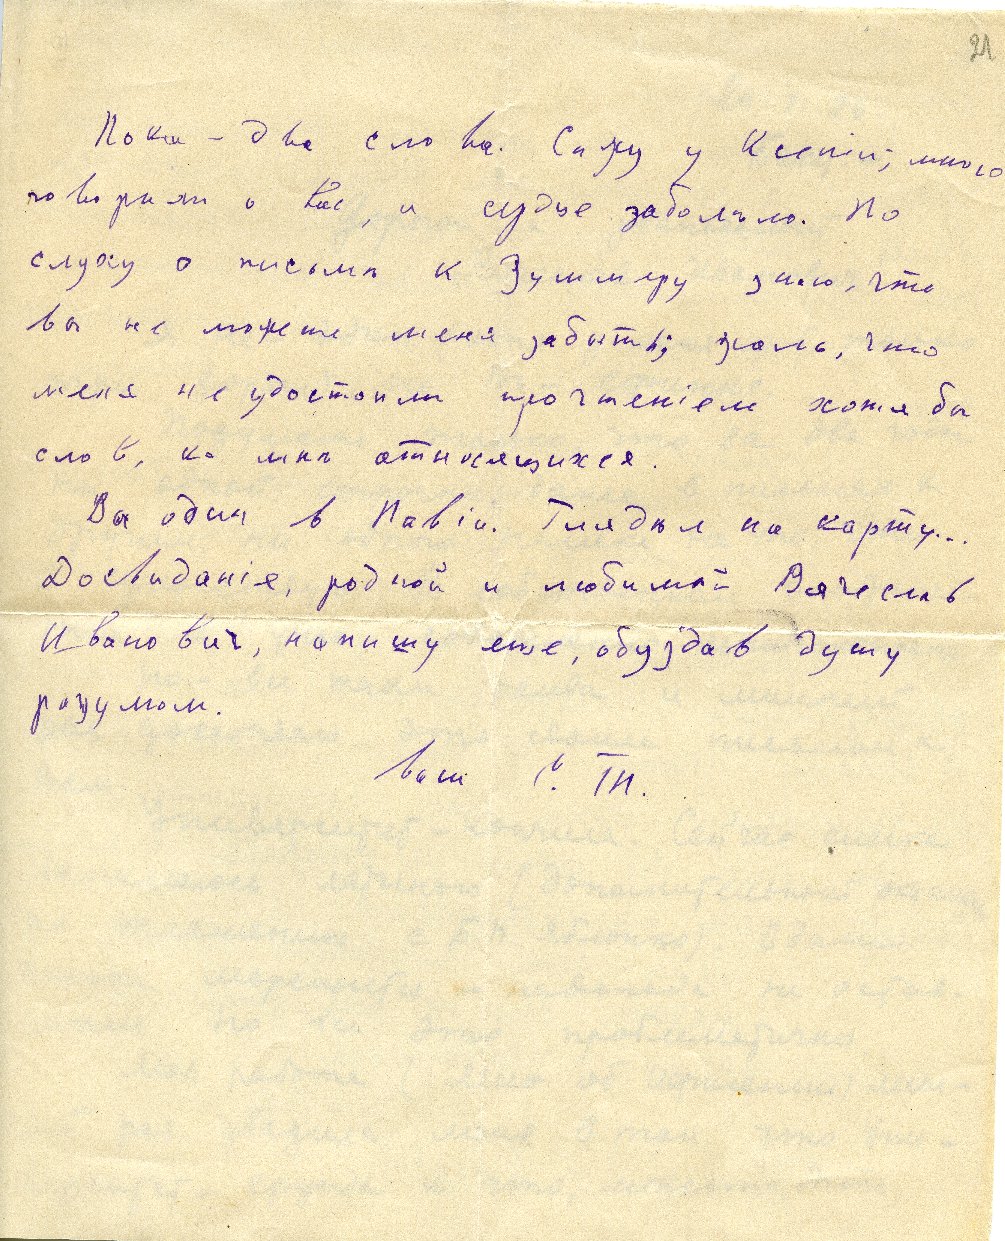 21
Пока – два слова. Сижу у Ксеніи, много
говорили о Вас, и сердце заболѣло. По
слуху о письмѣ к Зуммеру знаю, что
вы не можете меня забыть; жаль, что
меня не удостоили прочтеніем хотя бы
слов, ко мнѣ относящихся.
Вы один в Павіи. Глядѣл на карту...
Досвиданія, родной и любимый Вячеслав
Иванович, напишу еще, обуздав душу
разумом.
ваш С. ТН.